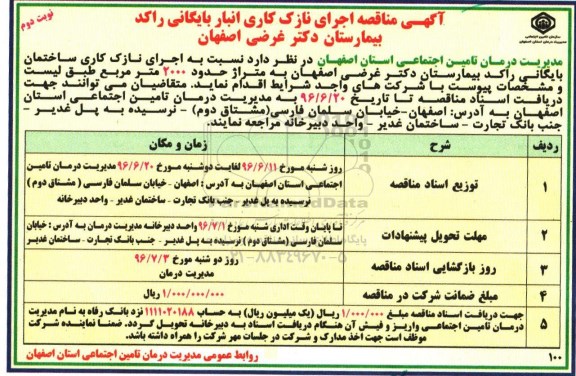 آگهی مناقصه اجرای نازک کاری انبار بایگانی راکد
بیمارستان دکتر غرضی اصفهان
نوبت دوم
مدیریت درمان تامین اجتماعی استان اصفهان در نظر دارد نسبت به اجرای نازک کاری ساختمان
بایگانی راکد بیمارستان دکتر غرضی اصفهان به متراژ حدود ۲۰۰۰ متر مربع طبق لیست
و مشخصات پیوست با شرکت های واجد شرایط اقدام نماید. متقاضیان می توانند جهت
دریافت اسناد مناقصه تا تاریخ ۹۶/۶/۲۰ به مدیریت درمان تامین اجتماعی استان
اصفهان به آدرس: اصفهان-خیابان سلمان فارسی(مشتاق دوم) - نرسیده به پل غدیر -
جنب بانک تجارت - ساختمان غدیر - واحد دبیرخانه مراجعه نمایند.
ردیف شرح زمان و مکان
۱ توزیع اسناد مناقصه
روز شنبه مورخ ۹۶/۶/۱۱ لغایت دوشنبه مورخ ۹۶/۶/۲۰ مدیریت درمان تامین
اجتماعی استان اصفهان به آدرس : اصفهان - خیابان سلمان فارسی ( مشتاق دوم )
نرسیده به پل غدیر - جنب بانک تجارت - ساختمان غدیر - واحد دبیرخانه
۲ مهلت تحویل پیشنهادات
تا پایان وقت اداری شنبه مورخ ۹۶/۷/۱ واحد دبیرخانه مدیریت درمان به آدرس : خیابان
سلمان فارسی (مشتاق دوم ) نرسیده به پل غدیر - جنب بانک تجارت - ساختمان غدیر
۳ روز بازگشایی اسناد مناقصه
روز دو شنبه مورخ ۹۶/۷/۳
مدیریت درمان
۴ مبلغ ضمانت شرکت در مناقصه ۱/۰۰۰/۰۰۰/۰۰۰ ریال
۵ جهت دریافت اسناد مناقصه مبلغ ۱/۰۰۰/۰۰۰ ریال (یک میلیون ریال) به حساب ۱۱۱۱۰۲۰۱۸۸ نزد بانک رفاه به نام مدیریت
درمان تامین اجتماعی واریز و فیش آن هنگام دریافت اسناد به دبیرخانه تحویل گردد. ضمنا نماینده شرکت
موظف است جهت اخذ مدارک و شرکت در جلسات مهر شرکت را همراه داشته باشد.
۱۰۰ روابط عمومی مدیریت درمان تامین اجتماعی استان اصفهان